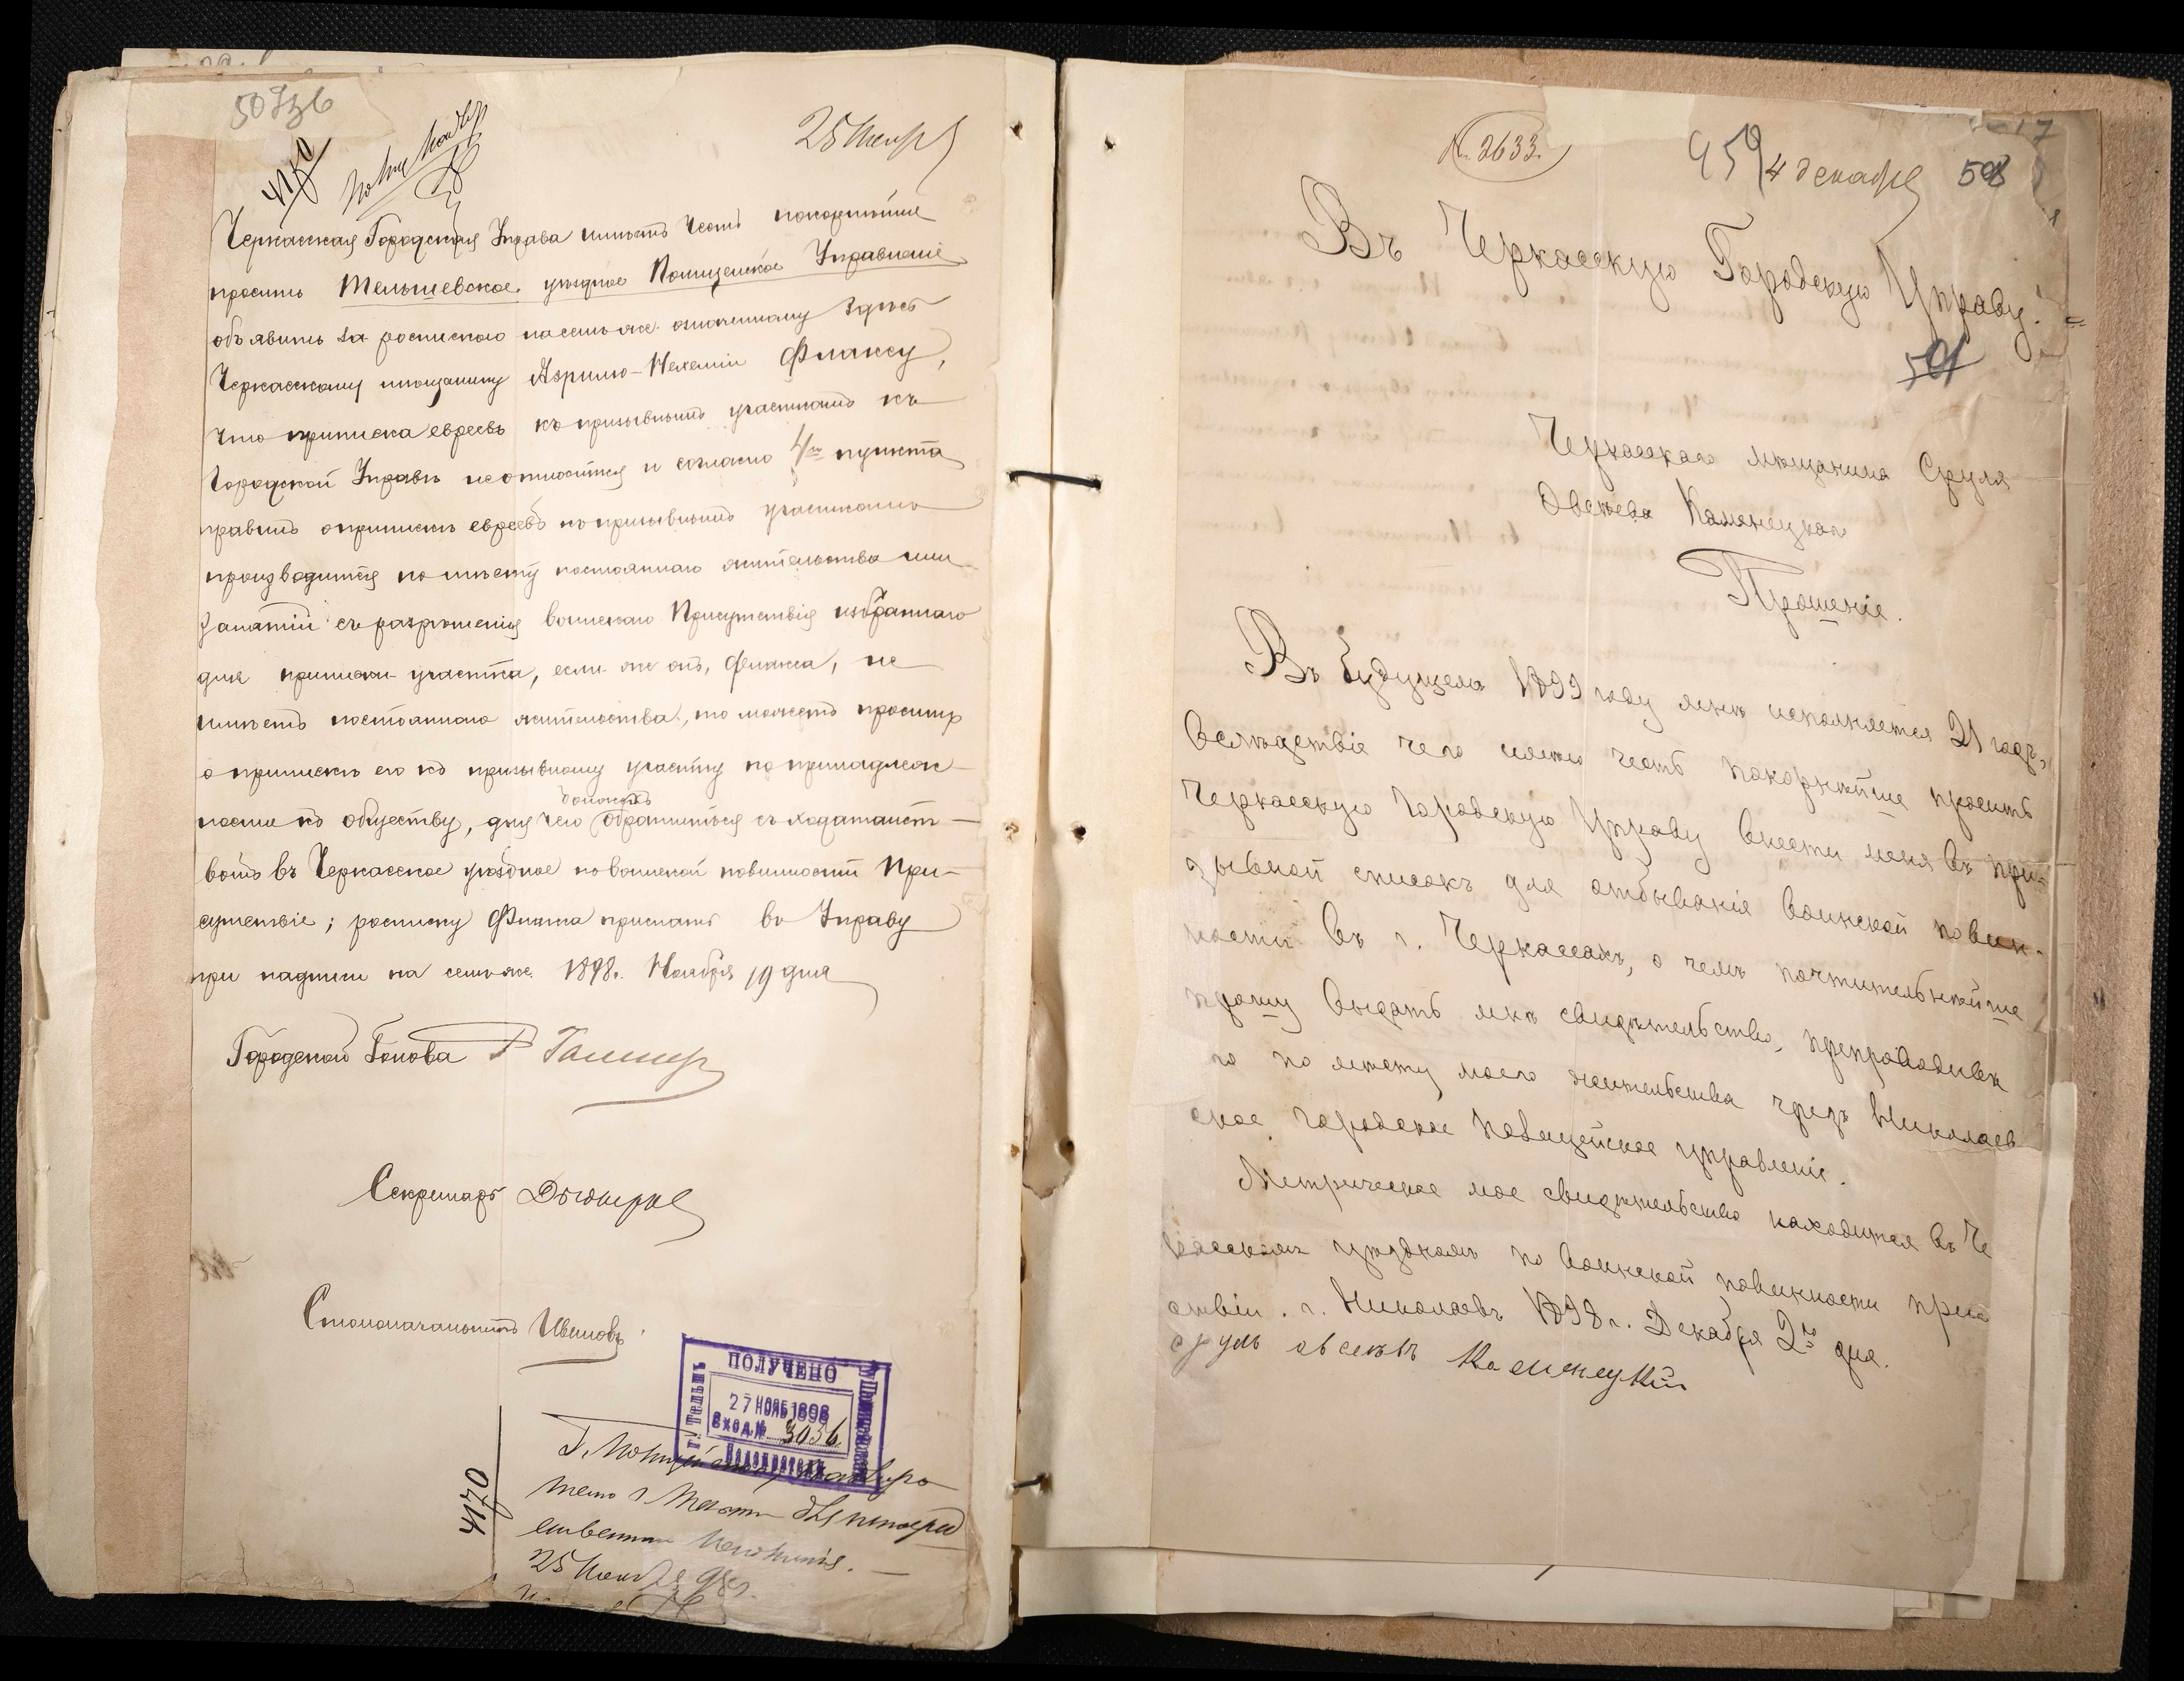 25 Нояр
4170
Черкасская Городская Управа имѣетъ честь покорнѣйше
проситъ Тельшевское уѣздное Полицейское Управленіе
объявить за роспискою на семъ-же означенному здѣсь
Черкасскому мѣщанину Азрилю-Нехеміи Флаксу,
что приписка евреевъ къ призывнымъ участкамъ къ
Городской Управѣ не относится и согласно 4го пункта
правилъ о припискѣ евреевъ по призывнымъ участкамъ
производится по мѣсту постояннаго жительства или
занятій съ разрѣшенія воинскаго Присутствія избраннаго
для приписки участка, если-же онъ, Флакса, не
имѣетъ постояннаго жительства, то можетъ просить
о припискѣ его къ призывному участку по принадлеж-
ности къ обществу, для чего долженъ обратиться съ ходатайст-
вомъ въ Черкасское уѣздное по воинской повинности При-
сутствіе; росписку Флакса прислать въ Управу
при надписи на семъ-же. 1898 г. Ноября 19 дня
Городской Голова
Секретарь
Столоначальникъ Ивановъ
ПОЛУЧЕНО
27 НОЯБ 1898
Вход. № 3056
4170
25 Нояб 98 г.
№ 2633
959 4 декабря 508
Въ Черкасскую Городскую Управу.
Черкасскаго мѣщанина Сруля
Овсѣева Каменецкаго
Прошеніе.
Въ будущемъ 1899 году мнѣ исполняется 21 годъ,
вслѣдствіе чего имѣю честь покорнѣйше просить
Черкасскую Городскую Управу внести меня въ при-
зывной списокъ для отбыванія воинской повин-
ности въ г. Черкассахъ, о чемъ почтительнѣйше
прошу выдать мнѣ свидѣтельство, препроводивъ
го по мѣсту моего жительства чрезъ Николаев
ское городское полицейское управленіе.
Метрическое мое свидѣтельство находится въ Че
касскомъ уѣздномъ по воинской повинности прис
ствіи. г. Николаевъ 1898 г. Декабря 2го дня.
Сруль Овсеевъ Каменецкій